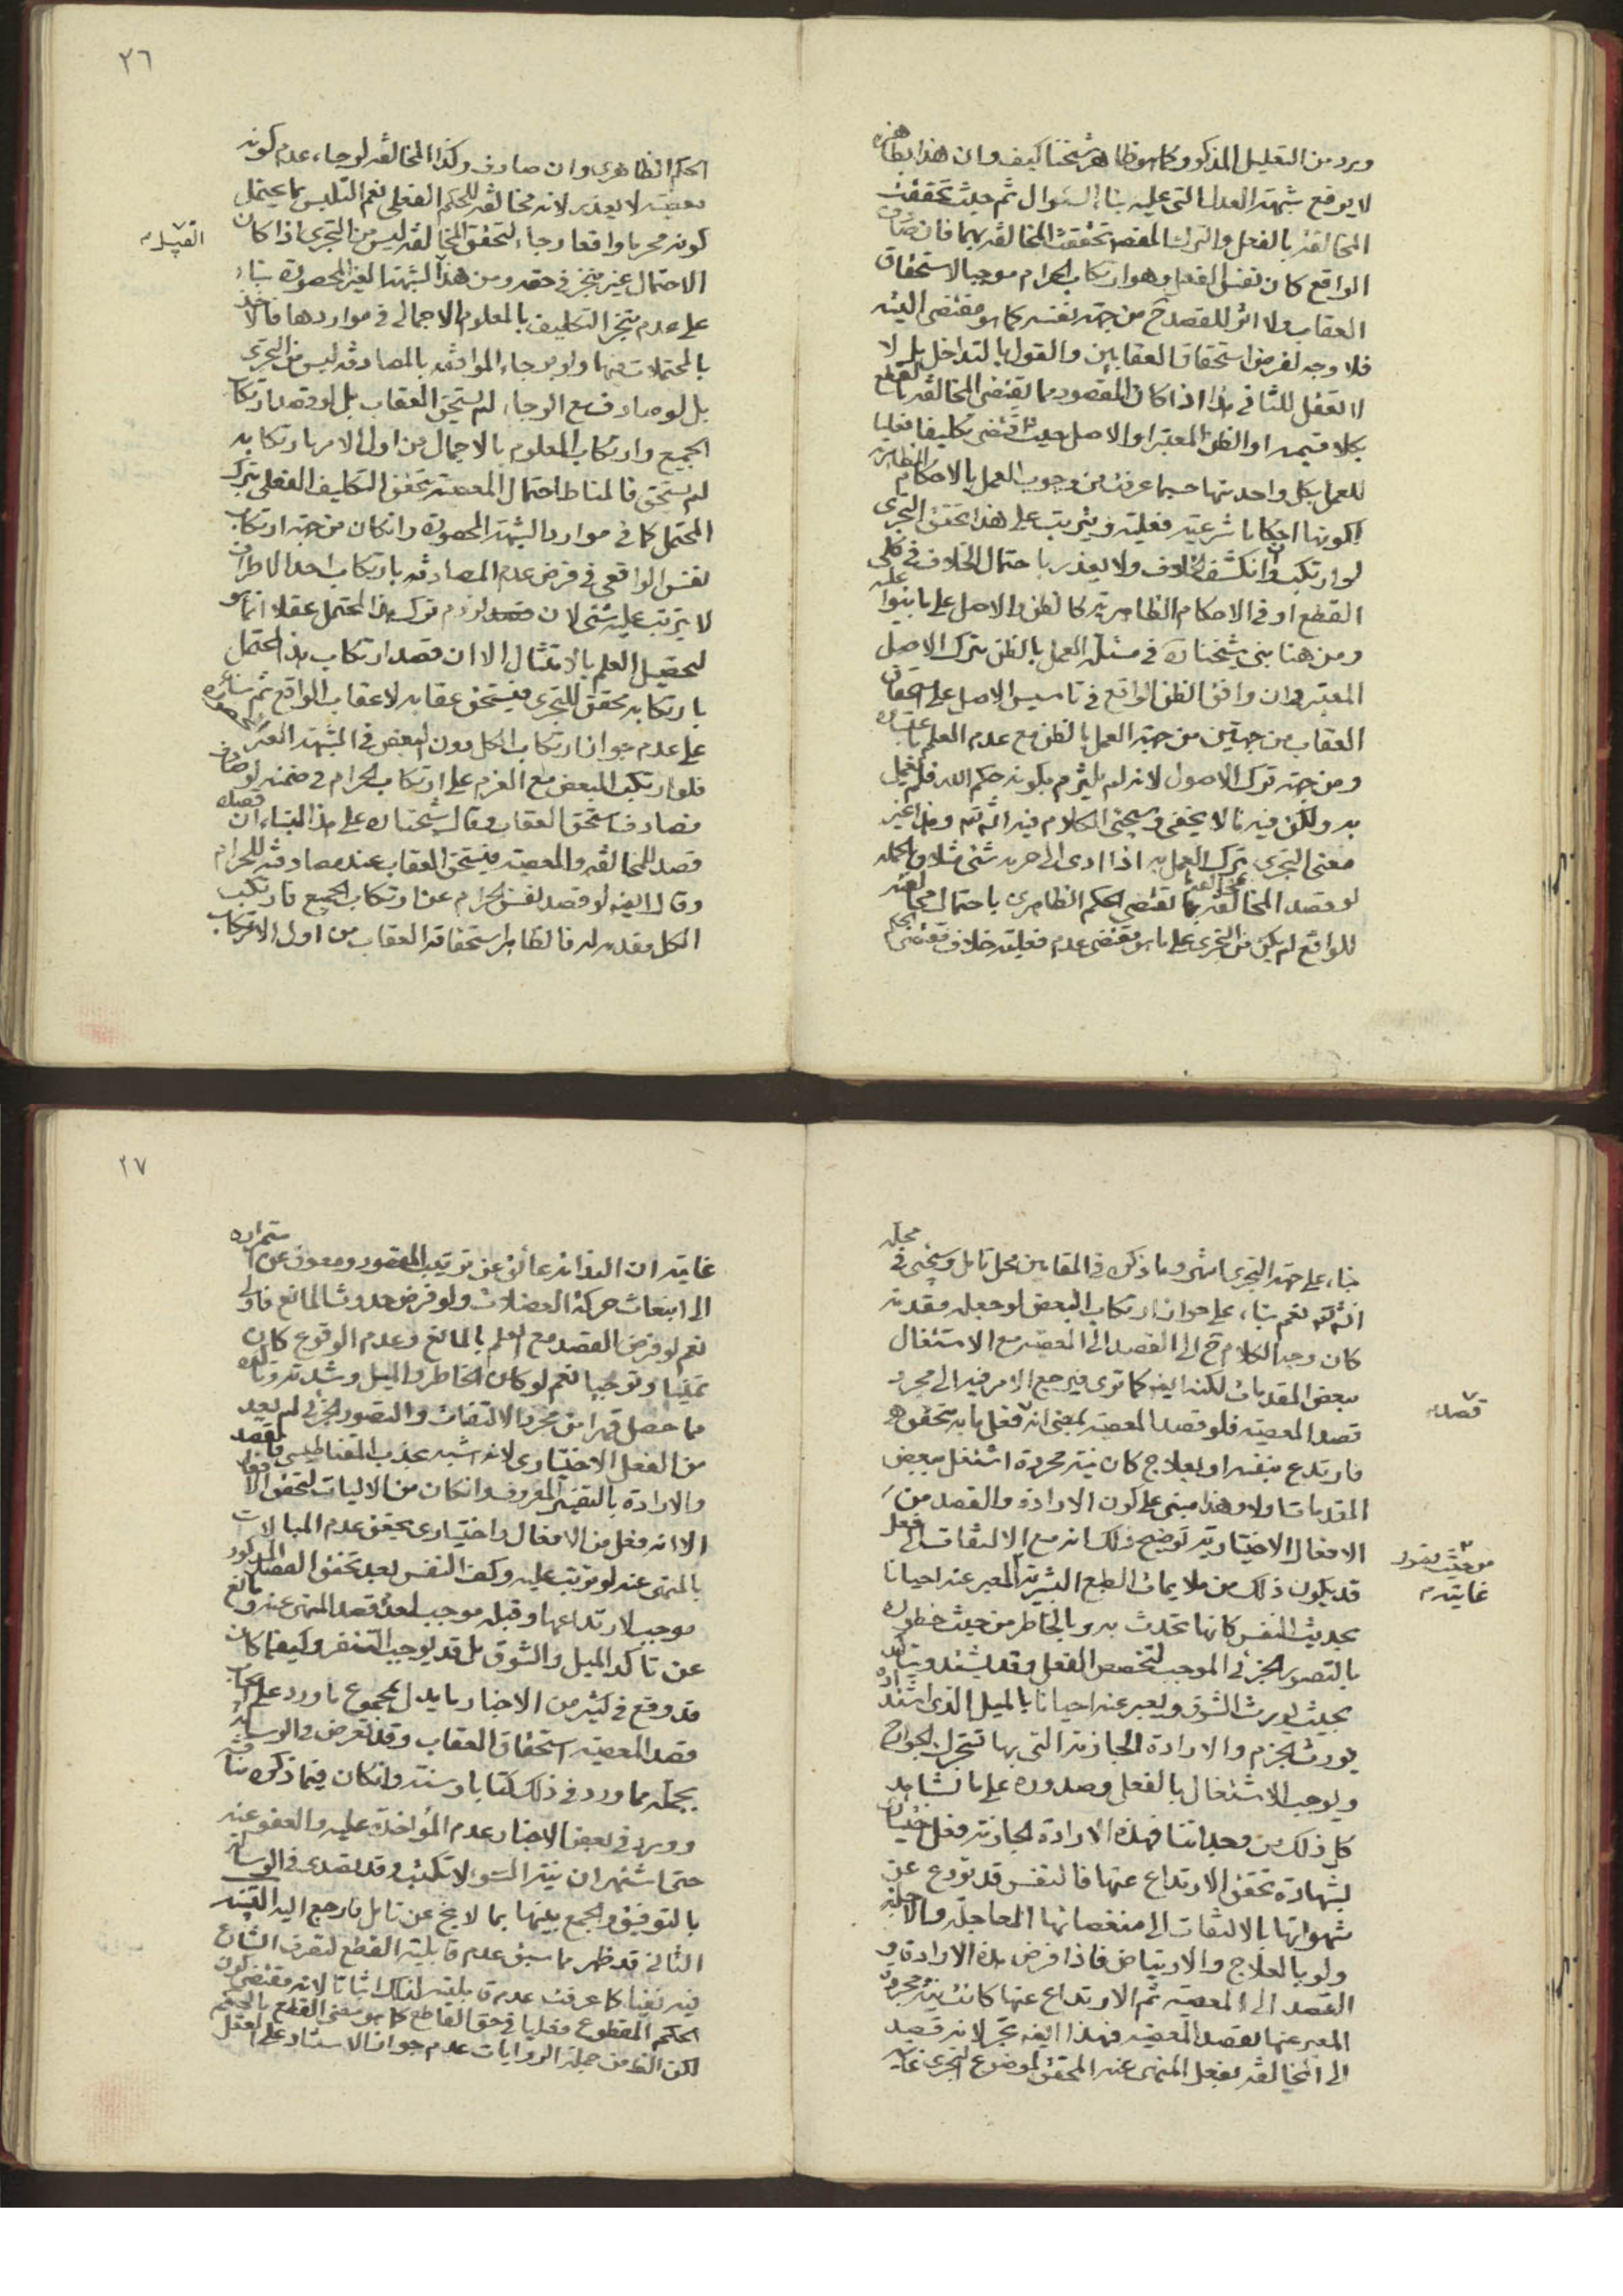 ويرد من التعليل المذكور وكما هو ظاهر شيخنا كيف وان هذا بظاهره
لا يوقع شبهة العدل التي عليه بناء السؤال ثم حيث تحققت
المخالفة بالفعل والترك المقصد تحققت المخالفة بهما فان صادف
الواقع كان نفس الفعل وهو ارتكاب الحرام موجبا لاستحقاق
العقاب ولا اثر للقصد ح من جهة نفسه كما هو مقتضى النية
فلا وجه لفرض استحقاق العقابين والقول بالتداخل بل لا
لا تعقل للثاني هذا اذا كان المقصود مما يقتضي المخالفة بالقطع
بكلا قسميه او الظن المعتبر او الاصل حيث اقتضى تكليفا فعليا
للعمل بكل واحد منها حسبما عرفت من وجوب العمل بالاحكام الظاهرية
لكونها احكاما شرعية فعلية ويترتب على هذا تحقق التجري
لو ارتكب وانكشف الخلاف ولا يعذر باحتمال الخلاف في كلي
القطع او في الاحكام الظاهرية كالظن والاصل على ما بنوا عليه
ومن هنا بنى شيخنا ره في مسئلة العمل بالظن بترك الاصل
المعتبر وان وافق الظن الواقع في تاسيس الاصل على استحقاق
العقاب من جهتين من جهة العمل بالظن مع عدم العلم باعتباره
ومن جهة ترك الاصول لانه لم يلتزم بكونه حكم الله فلم يعمل
به ولكن فيه ما لا يخفى وسيجئ الكلام فيه انشاء الله تم وهذا غير
معنى التجري بترك العمل به اذا ادى الى حرمة شئ مثلا وبالجملة
لو قصد المخالفة بما يقتضي الحكم الظاهري باحتمال مخالفته
للواقع لم يكن من التجري على ما هو مقتضى عدم فعلية خلاف مقتضى الحكم
٢٦
الحكم الظاهري وان صادف وكذا المخالفة لوجاء عدم كونه
معصية لا يعذر لانه مخالفة للحكم الفعلي نعم التلبس بما يحتمل
كونه محرما واقعا رجاء لتحقق المخالفة ليس من التجري اذا كان
الاحتمال غير منجز في حقه ومن هذا القبيل الشبهة الغير المحصورة بناء
على عدم تنجز التكليف بالمعلوم الاجمالي في مواردها فالاخذ
بالمحتملات منها ولو برجاء الموافقة بالمصادفة ليس من التجري
بل لو صادف مع الرجاء لم يستحق العقاب بل لو قصد ارتكاب
الجميع وارتكاب المعلوم بالاجمال من اول الامر بارتكابه
لم يستحق فالمناط احتمال المعصية بتحقق التكليف الفعلي بترك
المحتمل كما في موارد الشبهة المحصورة وان كان من جهة ارتكاب
نفس الواقعي في فرض عدم المصادفة بارتكاب احد الاطراف
لا يترتب عليه شئ لان لزوم ترك هذا المحتمل عقلا انما هو
لتحصيل العلم بالامتثال الا ان قصد ارتكاب هذا المحتمل
بارتكابه محقق للتجري فيستحق عقابه لا عقاب الواقع ثم بناء
على عدم جواز ارتكاب الكل دون البعض في الشبهة الغير المحصورة
فلو ارتكب البعض مع العزم على ارتكاب الحرام في ضمنه لو صادف
فصادف استحق العقاب وقال شيخنا ره على هذا البناء ان قصده
قصد للمخالفة والمعصية فيستحق العقاب عند مصادفته للحرام
وقال ايضه لو قصد نفس الحرام عن ارتكاب الجميع فارتكب
الكل مقدمة له فالظاهر استحقاقه العقاب من اول الارتكاب
بناء على جهة التجري انتهى وما ذكره في المقامين محل تامل وسيجئ في محله
انشاء الله نعم بناء على جواز ارتكاب البعض لو جعله مقدمة
كان وجه الكلام ح الى القصد الى المعصية مع الاشتغال
ببعض المقدمات لكنه ايضه كما ترى فيرجع الامر فيه الى مجرد
قصد المعصية فلو قصد المعصية بمعنى انه فعل ما به تحقق قصده
فارتدع بنفسه او بعلاج كان نية مجردة اشتغل ببعض
المقدمات اولا وهذا مبنى على كون الارادة والقصد من
الافعال الاختيارية توضيح ذلك انه مع الالتفات الى فعل
قد يكون ذلك من ملايمات الطبع البشرية المعبر عنه احيانا
بحديث النفس كانها تحدث به وبالخاطر من حيث خطوره
بالتصور الجزئي الموجب لتخصص الفعل وقد يشتد ويتاكد
بحيث يورث الشوق ويعبر عنه احيانا بالميل الذي اذا اشتد
يورث الجزم والارادة الجازمة التي بها تتحرك الجوارح
ويوجب الاشتغال بالفعل وصدوره على ما نشاهد
كل ذلك من وجداننا فهذه الارادة الجازمة فعل اختياري
لشهادة تحقق الارتداع عنها فالنفس قد تردع عن
شهواتها بالالتفات الى منغصاتها العاجلة والآجلة
ولو بالعلاج والارتياض فاذا فرض هذه الارادة و
القصد الى المعصية ثم الارتداع عنها كانت نية مجردة
المعبر عنها بقصد المعصية فهذا ايضه تجر لانه قصد
الى المخالفة بفعل المنهى عنه المحقق لموضوع التجري غايته
٢٧
غايته ان البداء عائق عن ترتب المقصود ومعوق عن استمراره
الى انبعاث حركة العضلات ولو فرض حدوث المانع فاولى
نعم لو فرض القصد مع العلم بالمانع وعدم الوقوع كان
تمنيا وترجيا نعم لو كان الخاطر والميل وشدته وتاكده
مما حصل قهرا من مجرد الالتفات والتصور الجزئي لم يعد
من الفعل الاختياري لانه اشبه بجذب المقناطيس فالقصد
والارادة بالتفسير المعروف وان كان من الاليات لتحقق الافعال
الا انه فعل من الافعال واختياري يحقق عدم المبالات
بالمنهى عنه لو ترتب عليه وكف النفس بعد تحقق القصد المذكور
موجب لارتداعها وقبله موجب لعدم قصد المنهى عنه ومانع
عن تاكد الميل والشوق بل قد يوجب التنفر وكيفما كان
قد وقع في كثير من الاخبار ما يدل بمجموع ما ورد على ايجاب
قصد المعصية استحقاق العقاب وقد تعرض في الوسائل
بجملة مما ورد في ذلك كتابا وسنة وان كان فيما ذكره مناقشة
وورد في بعض الاخبار عدم المؤاخذة عليه والعفو عنه
حتى اشتهر ان نية السوء لا تكتب وقد تصدى في الوسائل
بالتوفيق والجمع بينها بما لا يخ عن تامل فارجع اليه التنبيه
الثاني قد ظهر مما سبق عدم قابلية القطع لتصرف الشارع
فيه نفيا كما عرفت عدم قابليته لذلك اثباتا لانه مقتضى كون
الحكم المقطوع فعليا في حق القاطع كما هو معنى القطع بالحكم
لكن الظ من جملة الروايات عدم جواز الاستناد على العقل